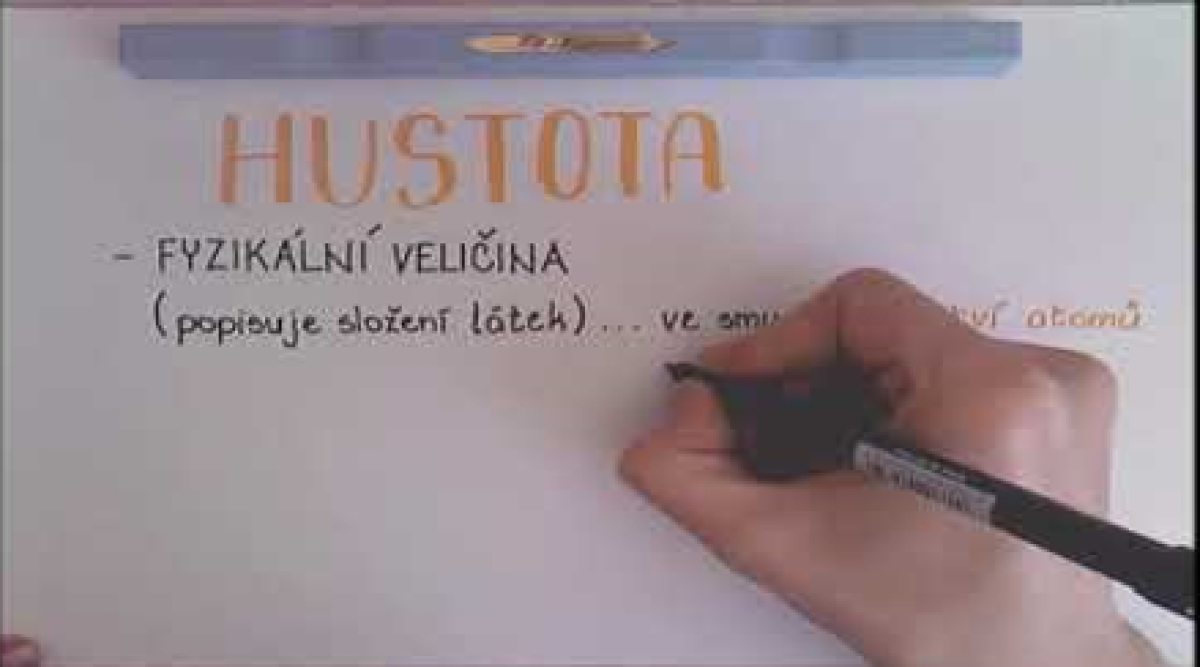 HUSTOTA
- FYZIKÁLNÍ VELIČINA
(popisuje složení látek) ... ve atomů